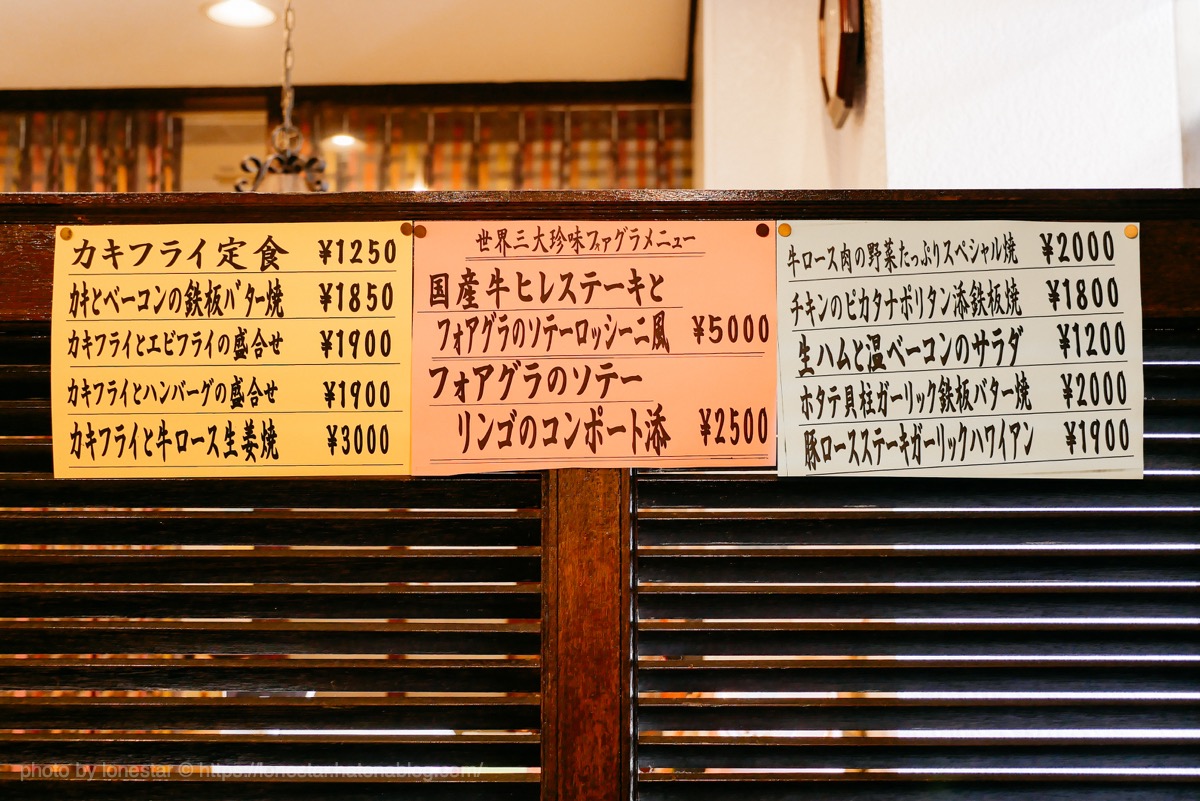 カキフライ定食 ¥1250
カキとベーコンの鉄板バター焼 ¥1850
カキフライとエビフライの盛合せ ¥1900
カキフライとハンバーグの盛合せ ¥1900
カキフライと牛ロース生姜焼 ¥3000
世界三大珍味フォアグラメニュー
国産牛ヒレステーキと
フォアグラのソテーロッシーニ風 ¥5000
フォアグラのソテー
リンゴのコンポート添 ¥2500
牛ロース肉の野菜たっぷりスペシャル焼 ¥2000
チキンのピカタナポリタン添鉄板焼 ¥1800
生ハムと温ベーコンのサラダ ¥1200
ホタテ貝柱ガーリック鉄板バター焼 ¥2000
豚ロースステーキガーリックハワイアン ¥1900
photo by lonestar © https://lonestar.hatenablog.com/